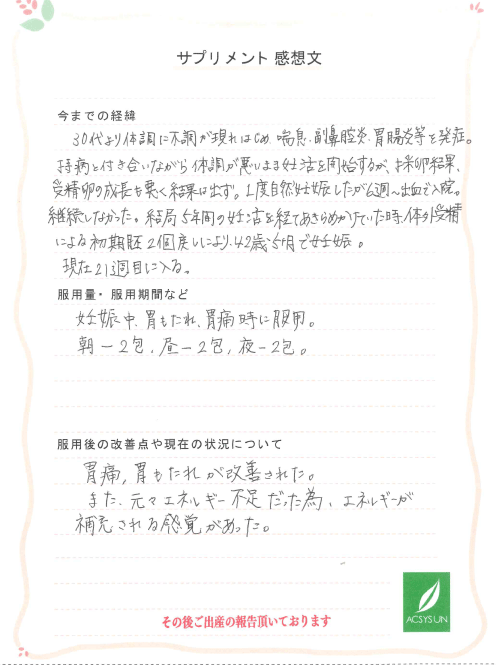 サプリメント 感想文
今までの経緯
30代より体調に不調が現れはじめ、喘息、副鼻腔炎、胃腸炎等を発症。
持病と付き合いながら体調が悪いまま妊活を開始するが、採卵結果、
受精卵の成長も悪く結果は出ず。1度自然妊娠したが6週〜出血で入院。
継続しなかった。結局5年間の妊活を経てあきらめかけていた時、体外受精
による初期胚2個戻しにより、42歳5ヶ月で妊娠。
現在21週目に入る。
服用量・服用期間など
妊娠中、胃もたれ、胃痛時に服用。
朝－2包，昼－2包，夜－2包。
服用後の改善点や現在の状況について
胃痛，胃もたれが改善された。
また、元々エネルギー不足だった為、エネルギーが
補充される感覚があった。
その後ご出産の報告頂いております
ACSYSUN